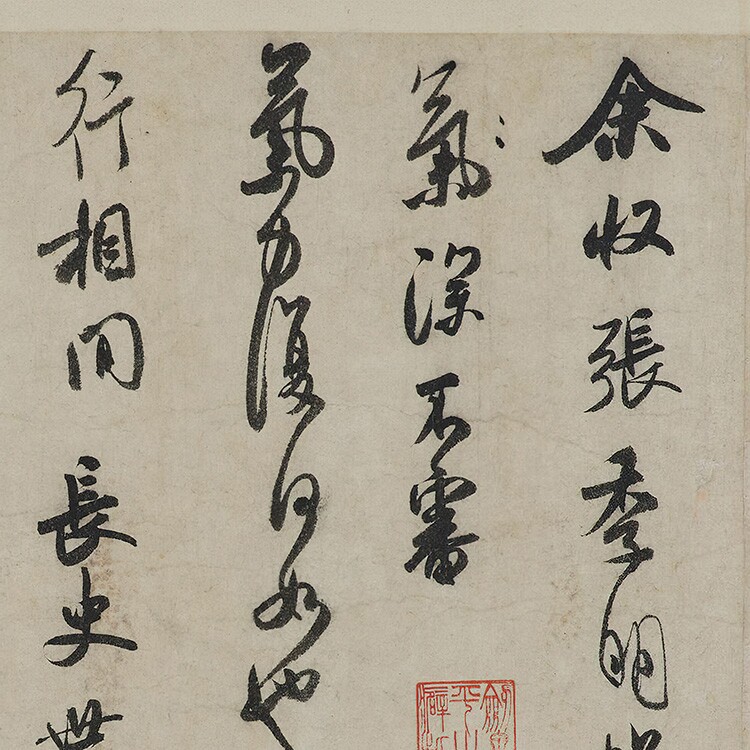 余收張季明
氣深不審
氣力復何如也
行相間 長史世